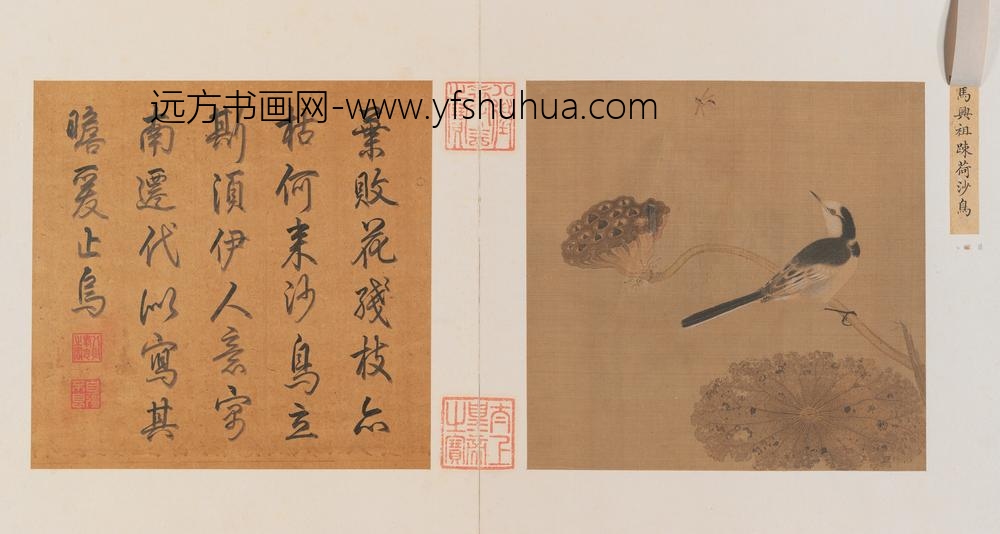 远方书画网-www.yfshuhua.com
馬興祖踈荷沙鳥
葉敗花殘枝亦
枯何来沙鳥立
斯須伊人意寓
南遷代似寫其
瞻爰止烏
太上皇帝之寶